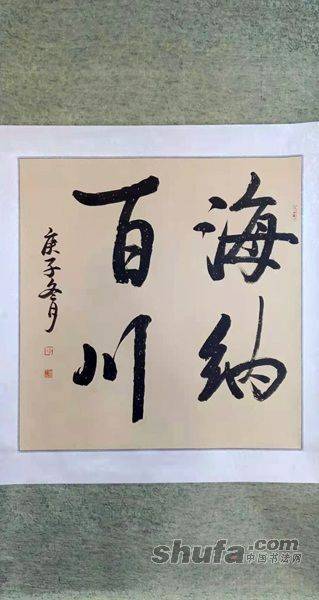 海纳
百川
庚子冬月
shufa.com
中国书法网